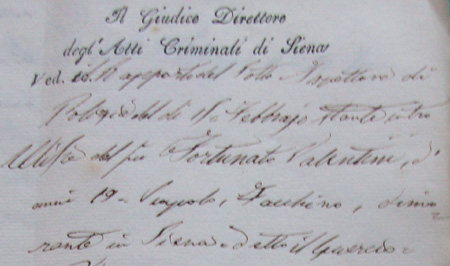 Il Giudice Direttore
degl'Atti Criminali di Siena
Ved. il Rapporto del Sotto Ispettore di
Polizia del dì 15 Febbrajo stante
del fu Fortunato Valentini, d'
anni 19 Scapolo, Facchino, dimo
rante in Siena detto il